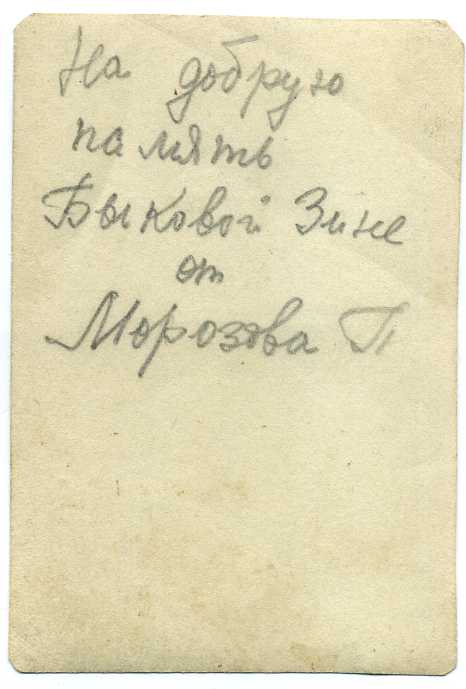 На добрую
память
Быковой Зине
от
Морозова П